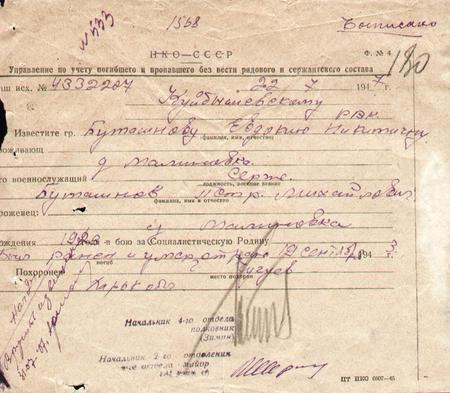 № 533
1558
Выписано
НКО—СССР
Ф. № 4
180
Управление по учету погибшего и пропавшего без вести рядового и сержантского состава
аш исх. № 4332207 22 7 1947
Куйбышевскому
РВК
Известите гр. Буташнову Евдокию Никитичну
фамилия, имя и отчество
роживающ
д Малиновка
то военнослужащий Серж.
должность, военное звание
Буташнов Петр Михайлович
фамилия, имя и отчество
уроженец:
д Малиновка
рождения в бою за Социалистическую Родину
был ранен и умер от ран 19 сент 1943
погиб
Похоронен Чугуев
место похорон
Харьков
Начальник 4-го отдела
полковник
(Зимин)
Начальник 2-го отделения
4-го отдела майор
ПТ НКО 0607—45